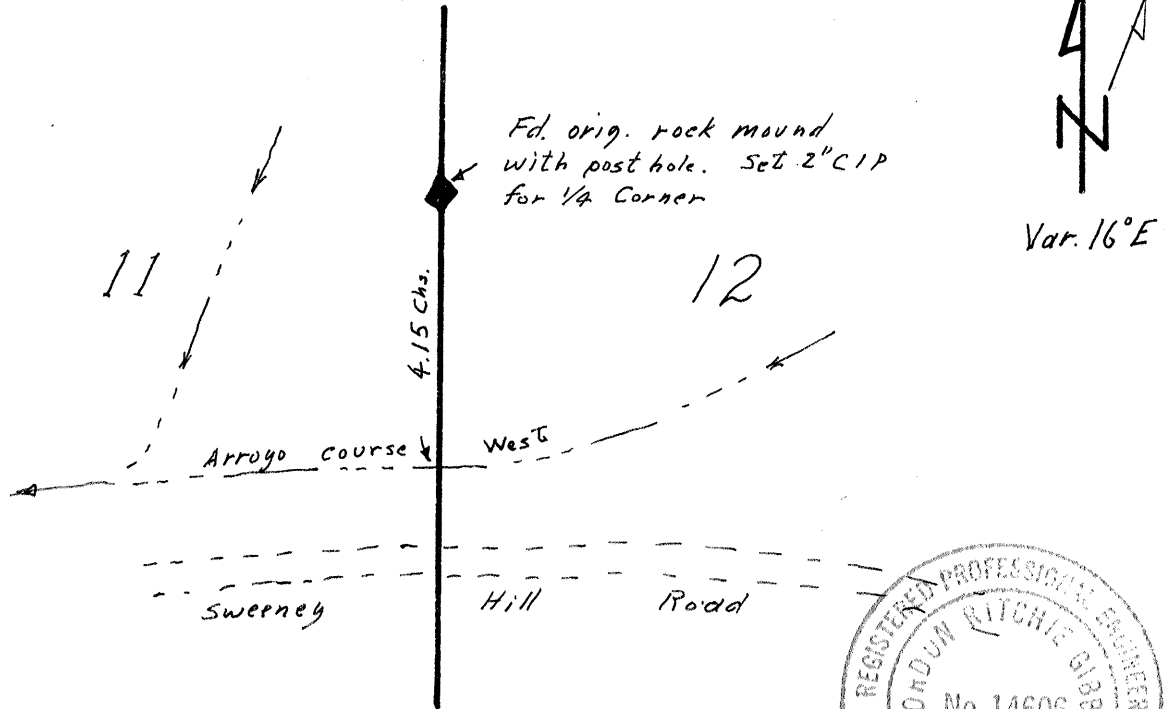 Fd. orig. rock mound
with post hole. Set 2" C I P
for 1/4 Corner
N
Var. 16°E
11
12
4.15 Chs.
Arroyo course West
Sweeney Hill Road
REGISTERED PROFESSIONAL ENGINEER
RITCHIE
No. 14606